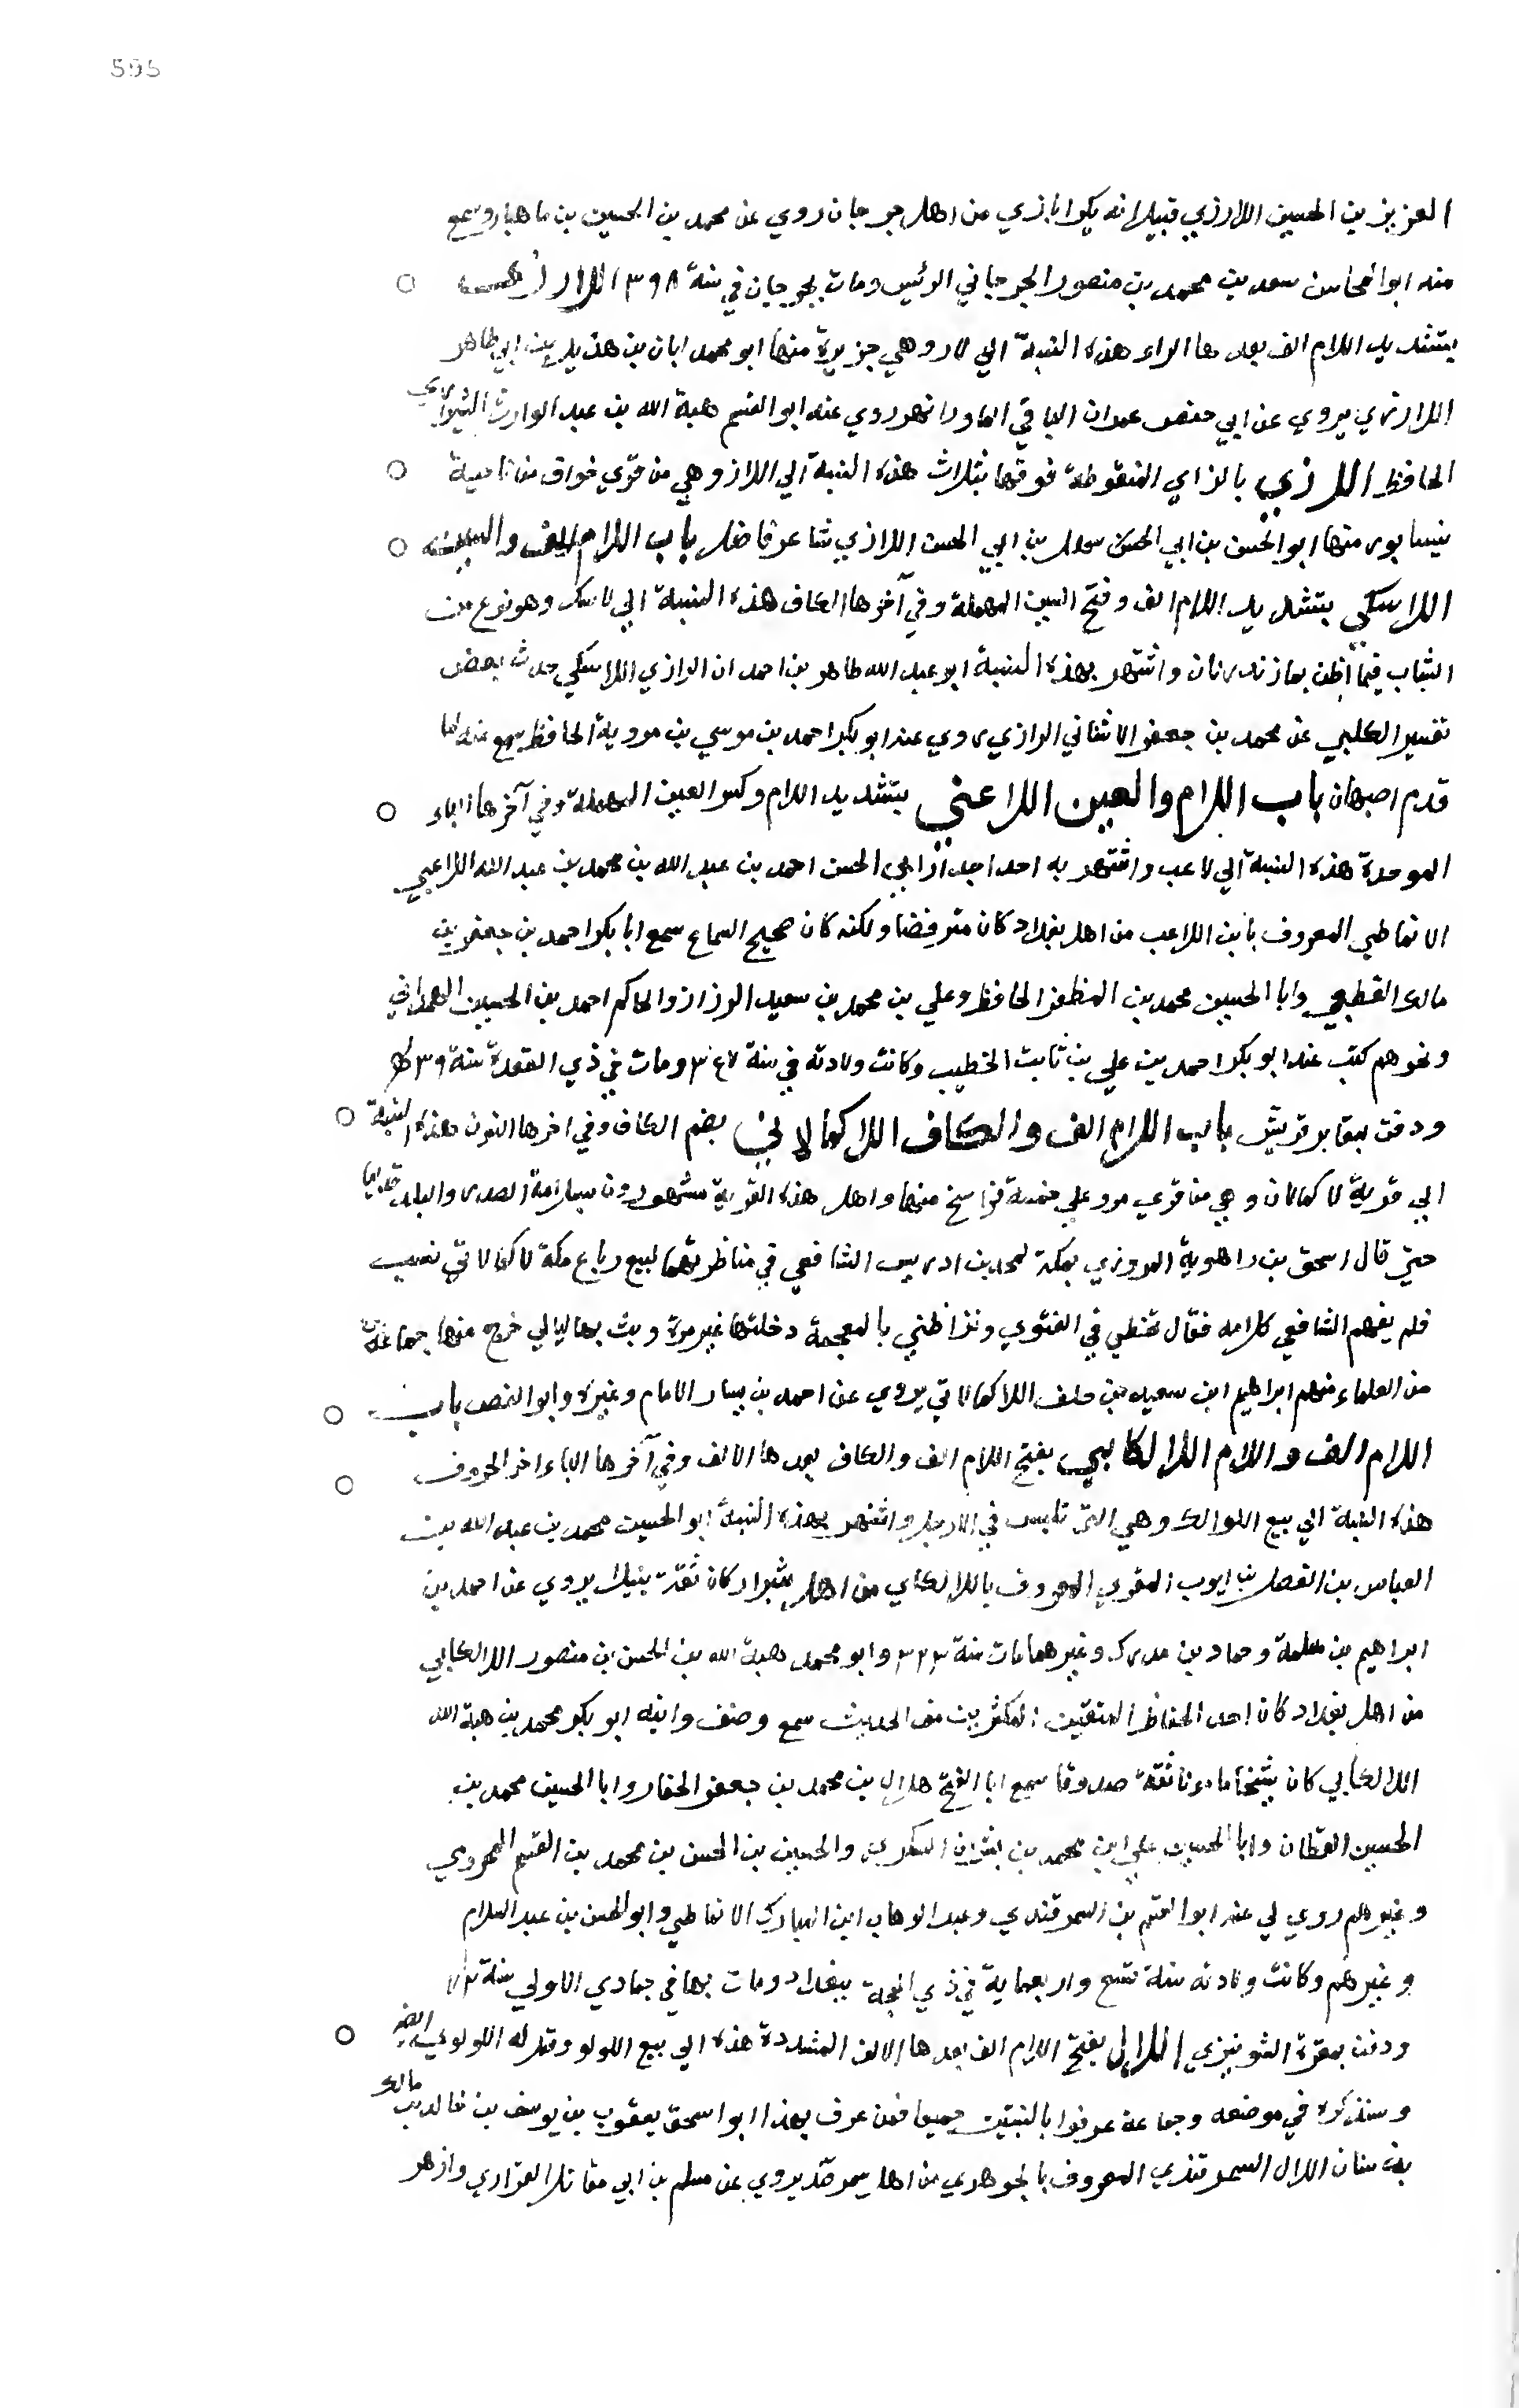 595
العزيز بن الحسين اللارزي قبيل انه بكراباذي من اهل جرجان روي عن محمد بن الحسين بن ماهيار وسمع
منه ابو المحاسن سعد بن محمد بن منصور الجرجاني الرئيس ومات بجرجان في سنة ٣٩٨ اللارزي
بتشديد اللام الف بعدها الراء هذه النسبة الي لار وهي جزيرة منها ابو محمد ابان بن هذيل بن ابي طاهر
اللارزي يروي عن ابي حفص عمر ان الباقي الماورا نهر روي عنه ابو القسم هبة الله بن عبد الوارث الشيرازي
الحافظ اللازي بالزاي المنقوطة فوقها بثلاث هذه النسبة الي اللاز وهي من قري خواف من ناحية
نيسابور منها ابو الحسن بن ابي الحسن سهل بن ابي الحسن اللازي شاعر فاضل باب اللام الف والسين
اللاسكي بتشديد اللام الف وفتح السين المهملة وفي آخرها الكاف هذه النسبة الي لاسك وهو نوع من
الثياب فيما اظن بمازندرنان واشتهر بهذه النسبة ابو عبد الله طاهر بن احمد ان الرازي اللاسكي حدث ببعض
تفسير الكلبي عن محمد بن جعفر الاشناني الرازي روي عنه ابو بكر احمد بن موسي بن مردوية الحافظ سمع منه لما
قدم اصبهان باب اللام والعين اللاعبي بتشديد اللام وكسر العين المهملة وفي آخرها الباء
الموحدة هذه النسبة الي لاعب واشتهر به احد اجداد ابي الحسن احمد بن عبد الله بن محمد بن عبد الله اللاعبي
الانماطي المعروف بابن اللاعب من اهل بغداد كان مترفضا ولكنه كان صحيح السماع سمع ابا بكر احمد بن جعفر بن
مالك القطيعي وابا الحسين محمد بن المظفر الحافظ وعلي بن محمد بن سعيد الرزاز والحاكم احمد بن الحسين الهمداني
ونحوهم كتب عنه ابو بكر احمد بن علي بن ثابت الخطيب وكانت ولادته في سنة ومات في ذي القعدة سنة
ودفن بمقابر قريش باب اللام الف والكاف اللاكمالاني بضم الكاف وفي اخرها النون هذه النسبة
الي قرية لاكمالان وهي من قري مرو علي خمسة فراسخ منها واهل هذه القرية مشهورون بسلامة الصدر والبله قديما
حتي قال اسحق بن راهوية المروزي بمكة لمحمد بن ادريس الشافعي في مناظرتهما لبيع رباع مكة لاكمالاتي نسيب
فلم يفهم الشافعي كلامه فقال تخطي في الفتوي وتزاطني بالعجمة دخلتها غير مرة وبت بها ليالي خرج منها جماعة
من العلماء منهم ابراهيم ابن سعيد بن خلف اللاكمالاتي يروي عن احمد بن سيار الامام وغيره وابو النصر باب
اللام الف واللام اللالكايي بفتح اللام الف والكاف بعدها الالف وفي آخرها الياء اخر الحروف
هذه النسبة الي بيع اللوالك وهي التي تلبس في الارجل واشتهر بهذه النسبة ابو الحسين محمد بن عبد الله بن
العباس بن الفضل بن ايوب المقري المعروف باللالكاي من اهل كان ثقة يروي عن احمد بن
ابراهيم بن سلمة وحماد بن مدرك وغيرهما مات سنة ٣٢٣ وابو محمد هبة الله بن الحسن بن منصور اللالكايي
من اهل بغداد كان احد الحفاظ المتقين المكثرين من الحديث سمع وصنف وابنه ابو بكر محمد بن هبة الله
اللالكايي كان شيخا مامونا ثقة صدوقا سمع ابا الفتح هلال بن محمد بن جعفر الحفار وابا الحسين محمد بن
الحسين القطان وابا الحسين علي بن محمد بن بشران السكري والحسين بن الحسن بن محمد بن القسم المخزومي
وغيرهم روي لي عنه ابو القسم بن السمرقندي وعبد الوهاب ابن المبارك الانماطي وابو الحسن بن عبد السلام
وغيرهم وكانت ولادته سنة تسع واربعماية في ذي الحجة ببغداد ومات بها في جمادي الاولي سنة
ودفن بمقبرة الشونيزي اللال بفتح اللام الف بعدها الالف المشددة هذه الي بيع اللولو وقيل له اللولوي ايضا
وسنذكره في موضعه وجماعة عرفوا بالنسبتين جميعا فمن عرف بهذا ابو اسحق يعقوب بن يوسف بن خالد بن مالك
بن سنان اللال السمرقندي المعروف بالجوهري من اهل سمرقند يروي عن مسلم بن ابي مقاتل الفزاري وازهر